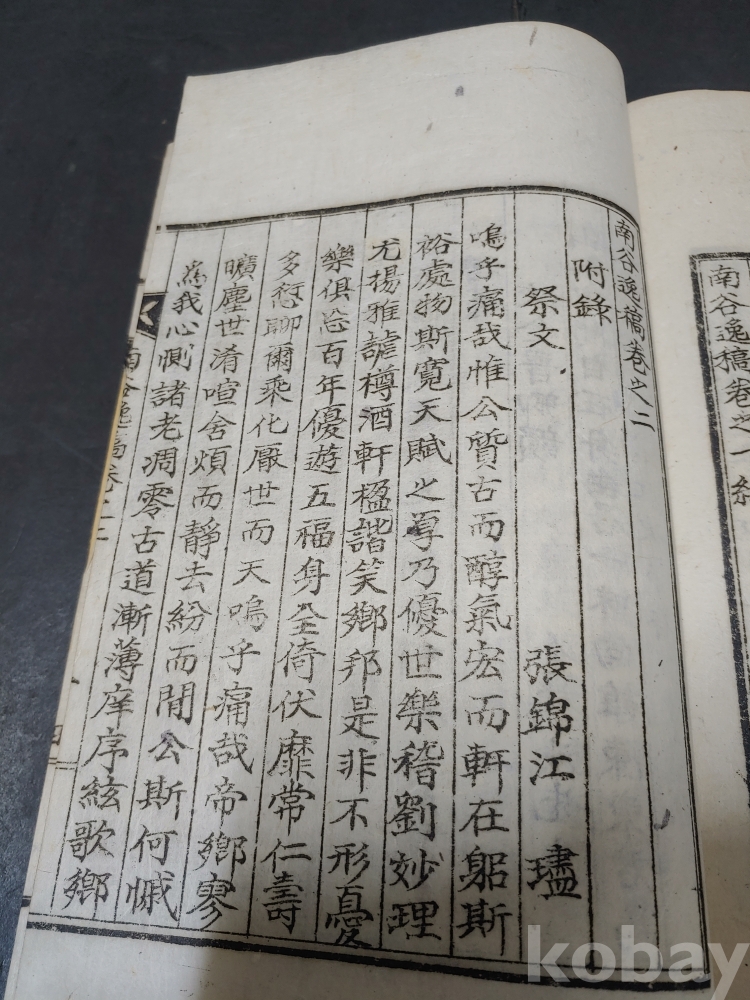 南谷逸稿卷之一終
南谷逸稿卷之二
附錄
祭文 張錦江 璶
嗚乎痛哉惟公質古而醇氣宏而軒在躬斯
裕處物斯寬天賦之厚乃優世樂稽劉妙理
尤揚雅謔樽酒軒楹諧笑鄉邦是非不形憂
樂俱忘百年優遊五福身全倚伏靡常仁壽
多愆聊爾乘化厭世而天嗚乎痛哉帝鄉寥
曠塵世淆喧舍煩而靜去紛而閒公斯何慽
爲我心惻諸老凋零古道漸薄庠序絃歌鄉
南谷逸稿卷之二
四
kobay